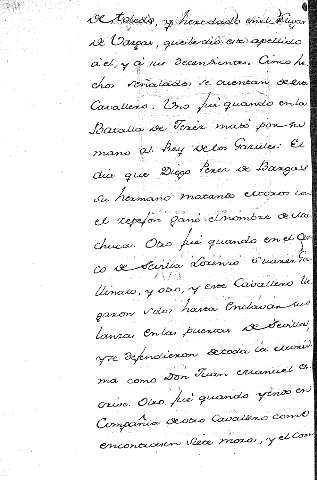 de Toledo, y heredado en el lugar
de Vargas, que le dio este apellido
á el, y á sus decendientes. Cinco he
chos señalados se cuentan de este
Cavallero. Uno fué quando en la
Batalla de Xerez mató por su
mano al Rey de los Gazules. El
dia que Diego Perez de Bargas
su hermano matando moros con
el cepejón ganó el nombre de Ma
chuca. Otro fué quando en el Cer
co de Sevilla Lorenzo Suarez Ga
llinato, y otro, y este Cavallero lle
garon solos hasta Enclavar sus
lanzas en las puertas de Sevilla,
y se defendieron de toda la
ma como Don Juan Manuel es
crive. Otro fué quando yendo en
Compañia de otro Cavallero como
encontrasen siete moros, y el Com